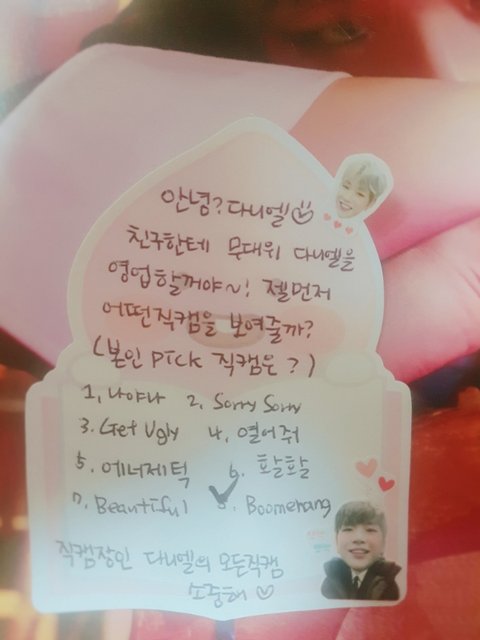 안녕? 다니엘
친구한테 무대위 다니엘을
영업할꺼야~! 젤먼저
어떤직캠을 보여줄까?
(본인 PICK 직캠은?)
1. 나야나 2. Sorry Sorry
3. Get Ugly 4. 열어줘
5. 에너제틱 6. 활활
7. Beautiful 8. Boomerang
직캠장인 다니엘의 모든직캠
소중해 ♡